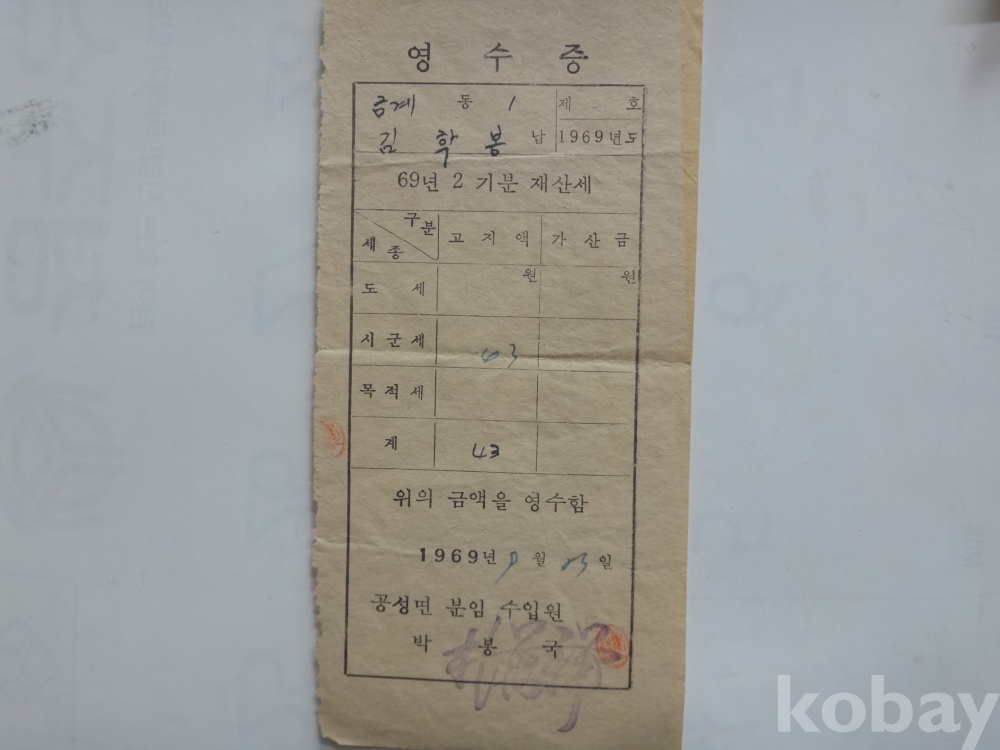 영 수 증
금계 동 1 제 호
김 학 봉 납 1969년도
69년 2 기분 재산세
구분 세종 고 지 액 가 산 금
도 세 원 원
시 군 세 43
목 적 세
계 43
위의 금액을 영수함
1969년 9월 23일
공성면 분임 수입원
박 봉 국
kobay